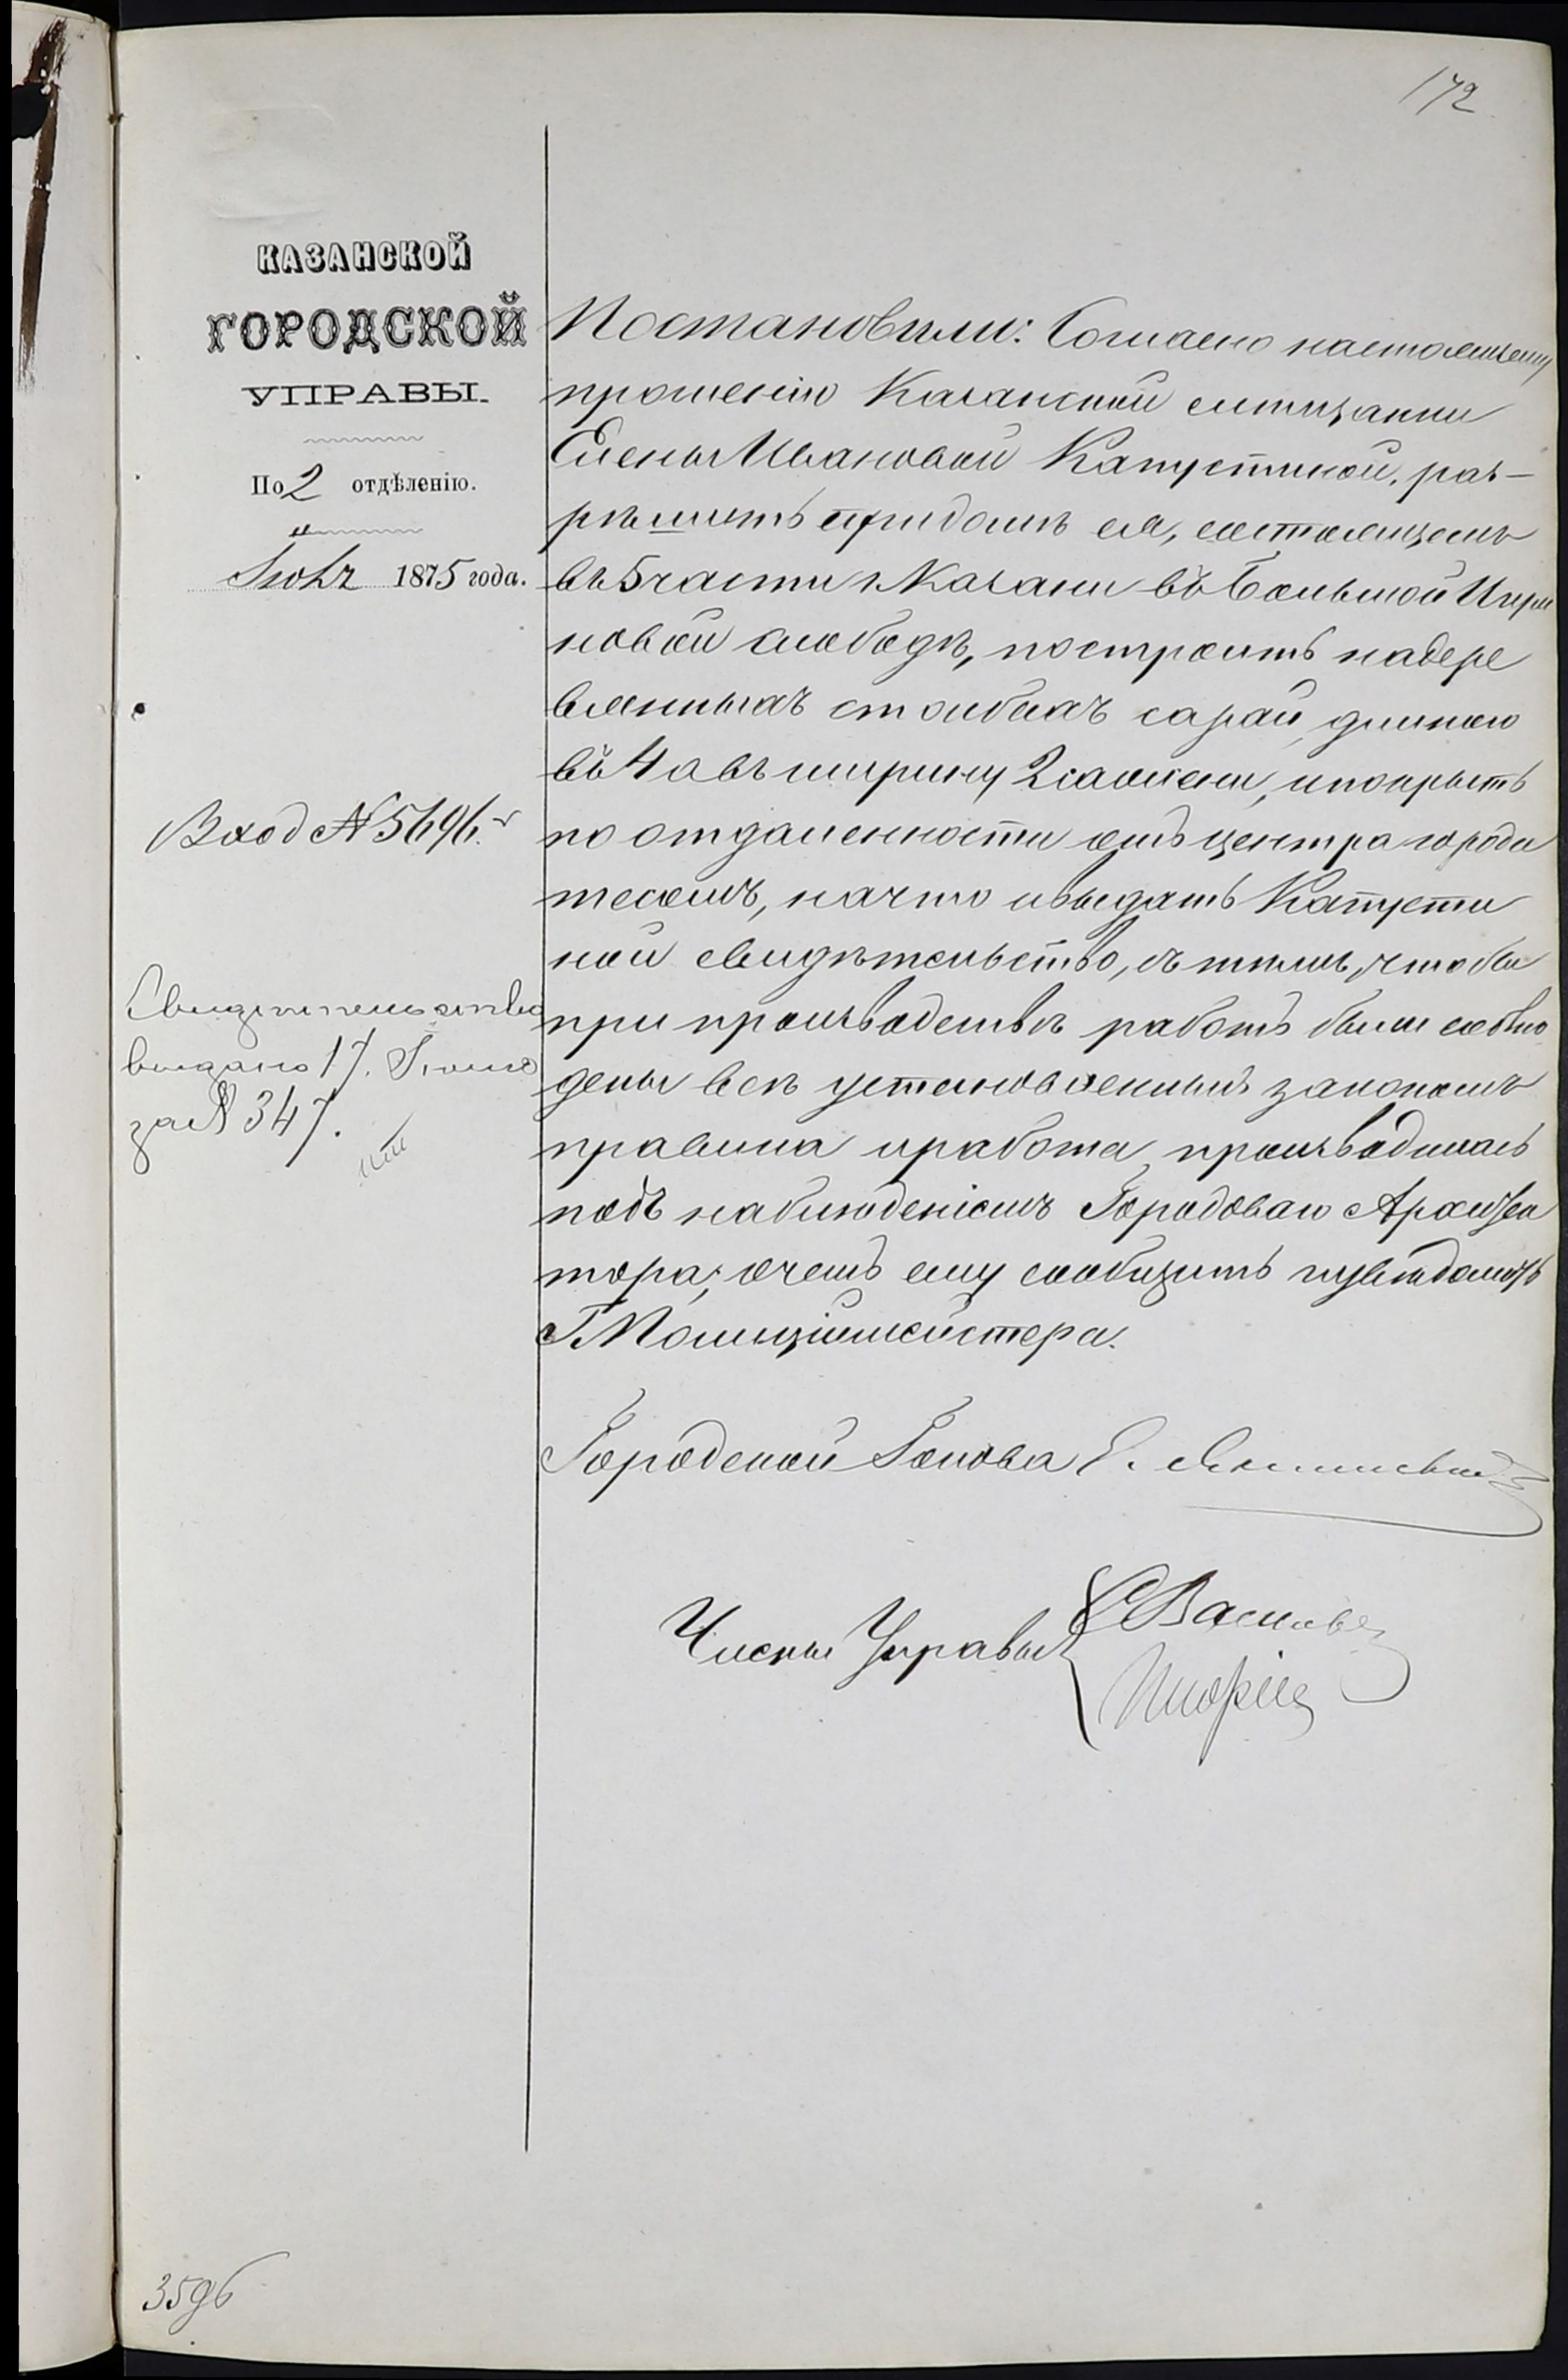 172
КАЗАНСКОЙ
ГОРОДСКОЙ
УПРАВЫ.
По 2 отдѣленію.
1875 года.
Вход № 5696.
Свидѣтельство
выдано 17. Іюня
за № 347.
Постановили: Согласно настоящему
прошенію Казанской мѣщанки
Елены Ивановой Капустиной, раз-
рѣшить при домѣ ея, состоящемъ
въ 5 части г. Казани въ Большой Игум
новой слободѣ, построить на дере
вянныхъ столбахъ сарай, длиною
въ 4 а въ ширину 2 сажени, и покрыть
по отдаленности отъ центра города
тесомъ, на что и выдать Капусти
ной свидѣтельство, съ тѣмъ, чтобы
при производствѣ работъ были соблю
дены всѣ установленныя закономъ
правила и работа производилась
подъ наблюденіемъ Городоваго Архитек
тора; о чемъ ему сообщить и увѣдомить
Г. Полиціймейстера.
Городской Голова Е.
Члены Управы
3596